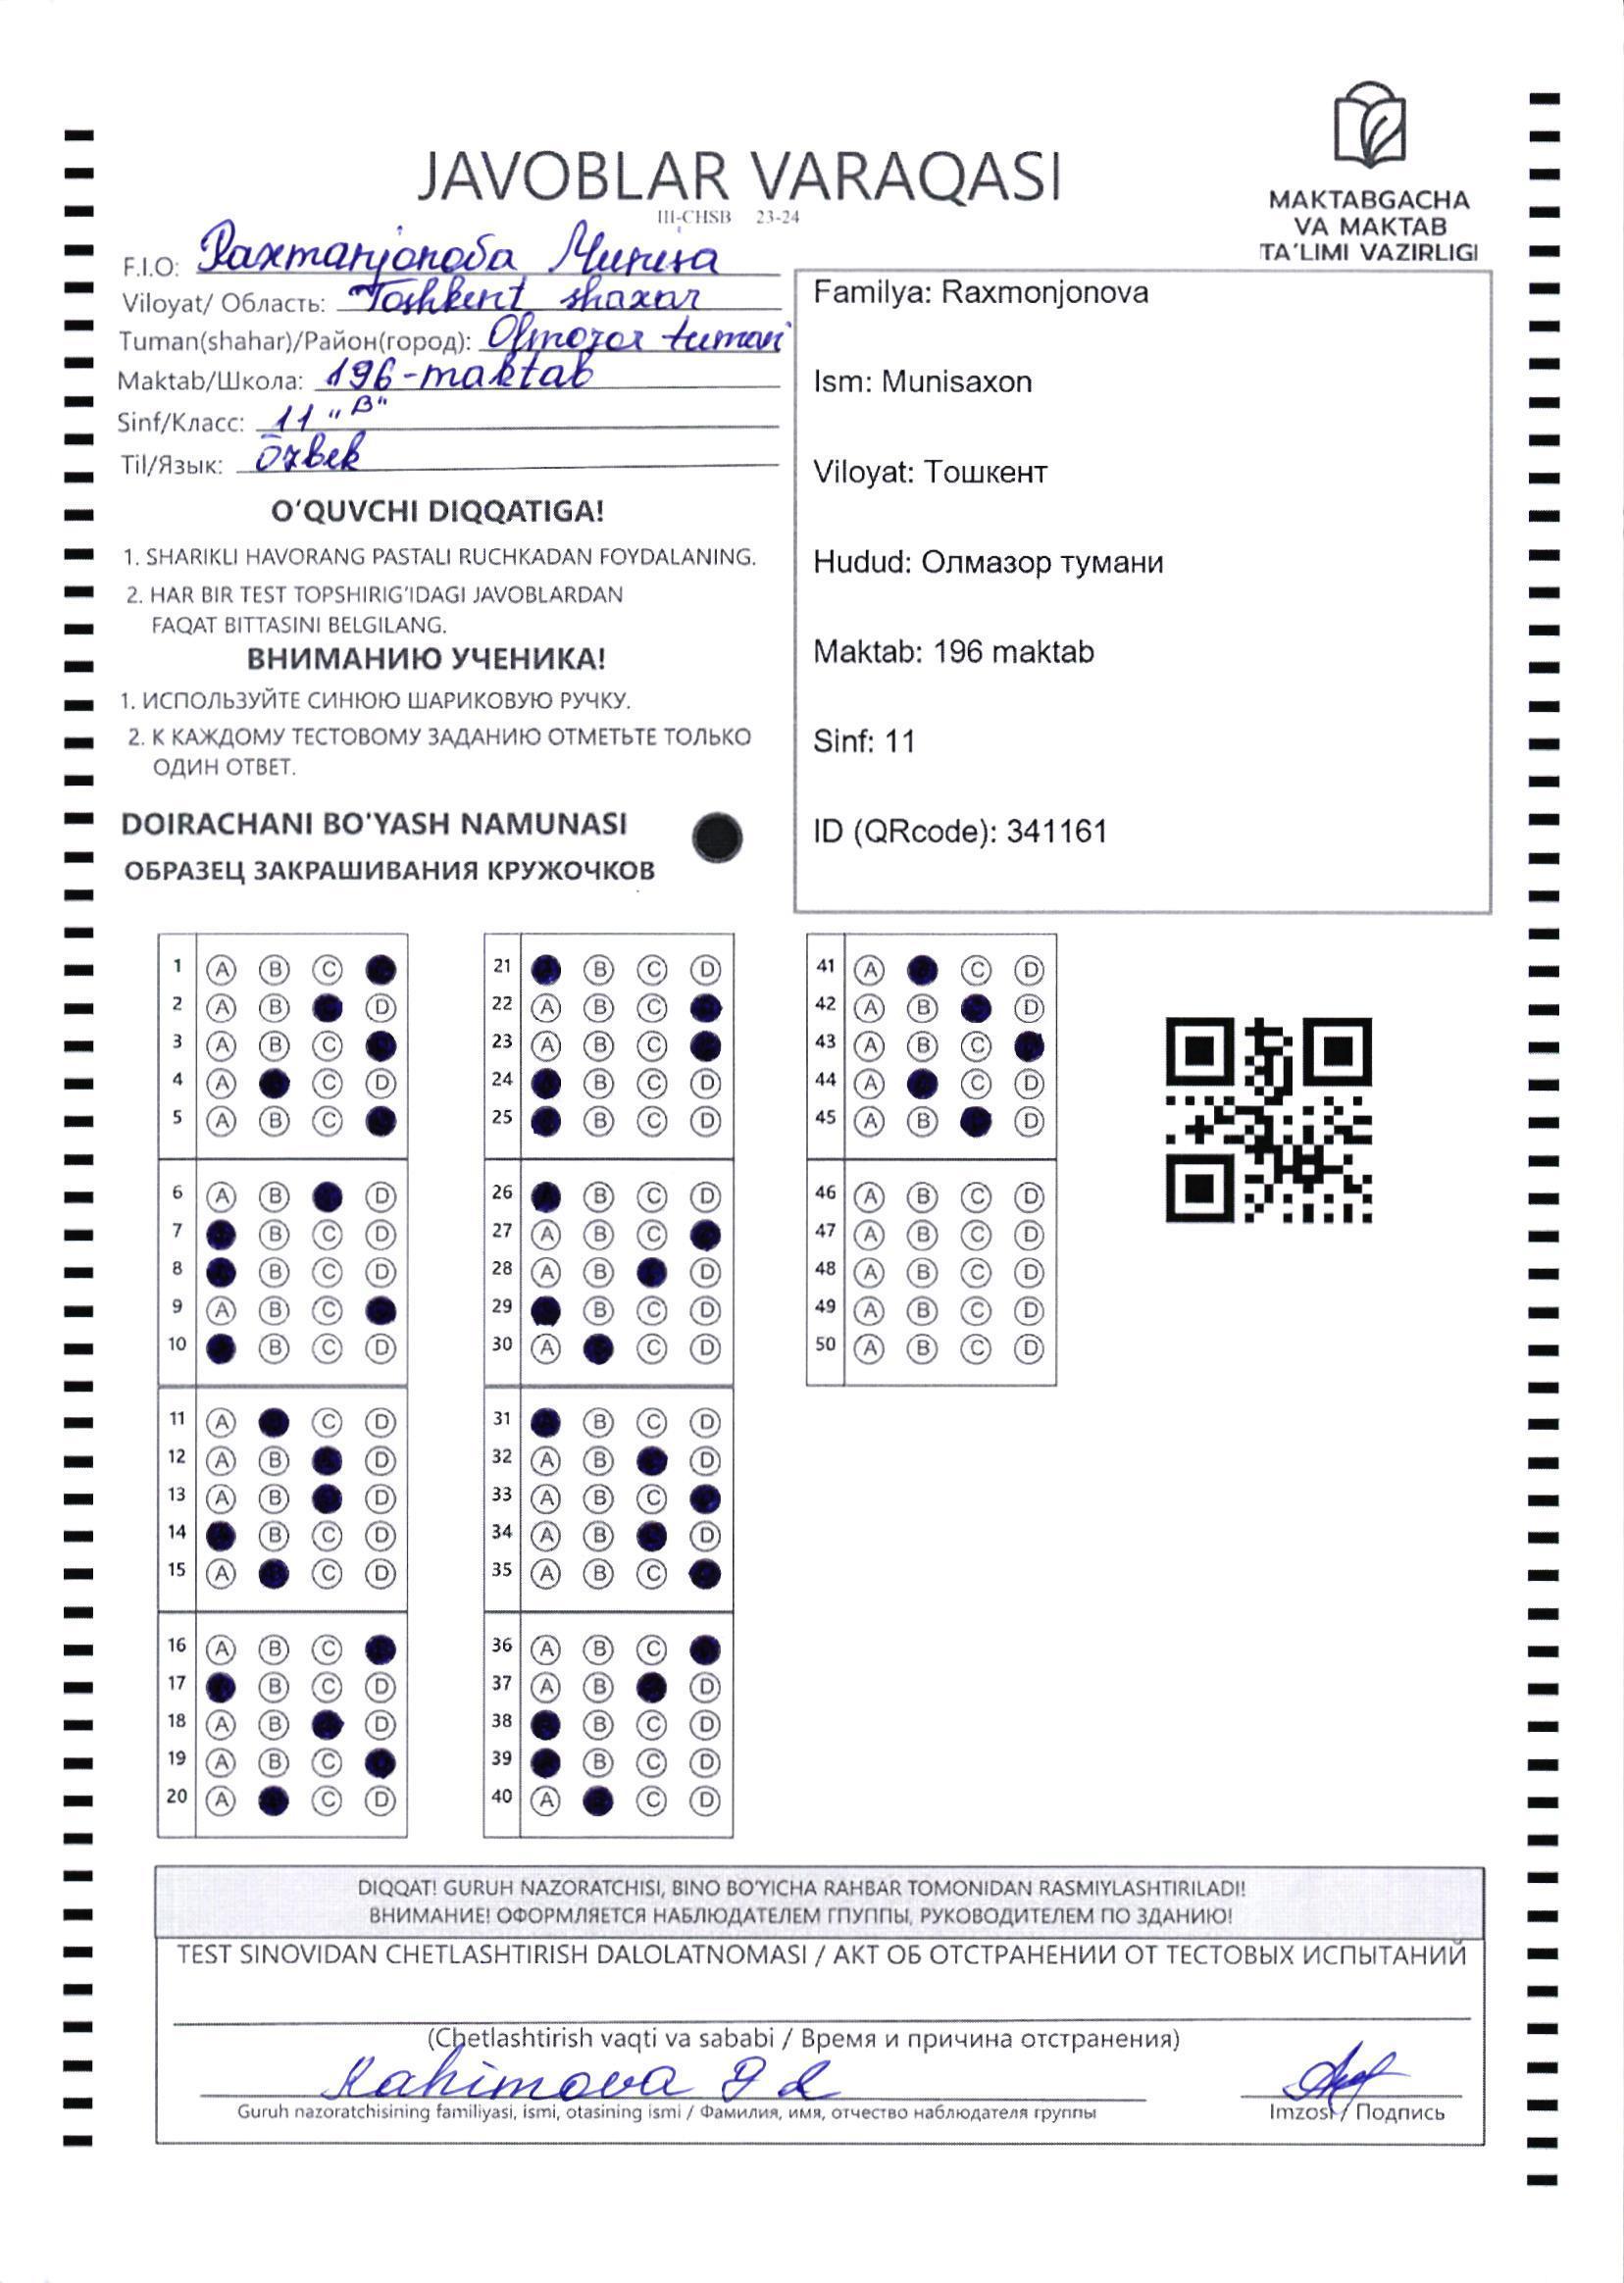 JAVOBLAR VARAQASI
III-CHSB 23-24
MAKTABGACHA
VA MAKTAB
TA'LIMI VAZIRLIGI
F.I.O: Raxmanjonova Munisa
Viloyat/ Область: Toshkent shaxar
Tuman(shahar)/Район(город): Olmozor tumani
Maktab/Школа: 196-maktab
Sinf/Класс: 11 "B"
Til/Язык: Ōzbek
O'QUVCHI DIQQATIGA!
1. SHARIKLI HAVORANG PASTALI RUCHKADAN FOYDALANING.
2. HAR BIR TEST TOPSHIRIG'IDAGI JAVOBLARDAN
FAQAT BITTASINI BELGILANG.
ВНИМАНИЮ УЧЕНИКА!
1. ИСПОЛЬЗУЙТЕ СИНЮЮ ШАРИКОВУЮ РУЧКУ.
2. К КАЖДОМУ ТЕСТОВОМУ ЗАДАНИЮ ОТМЕТЬТЕ ТОЛЬКО
ОДИН ОТВЕТ.
DOIRACHANI BO'YASH NAMUNASI
ОБРАЗЕЦ ЗАКРАШИВАНИЯ КРУЖОЧКОВ
Familya: Raxmonjonova
Ism: Munisaxon
Viloyat: Тошкент
Hudud: Олмазор тумани
Maktab: 196 maktab
Sinf: 11
ID (QRcode): 341161
1 A B C
2 A B D
3 A B C
4 A C D
5 A B C
6 A B D
7 B C D
8 B C D
9 A B C
10 B C D
11 A C D
12 A B D
13 A B D
14 B C D
15 A C D
16 A B C
17 B C D
18 A B D
19 A B C
20 A C D
21 B C D
22 A B C
23 A B C
24 B C D
25 B C D
26 B C D
27 A B C
28 A B D
29 B C D
30 A C D
31 B C D
32 A B D
33 A B C
34 A B D
35 A B C
36 A B C
37 A B D
38 B C D
39 B C D
40 A C D
41 A C D
42 A B D
43 A B C
44 A C D
45 A B D
46 A B C D
47 A B C D
48 A B C D
49 A B C D
50 A B C D
DIQQAT! GURUH NAZORATCHISI, BINO BO'YICHA RAHBAR TOMONIDAN RASMIYLASHTIRILADI!
ВНИМАНИЕ! ОФОРМЛЯЕТСЯ НАБЛЮДАТЕЛЕМ ГПУППЫ, РУКОВОДИТЕЛЕМ ПО ЗДАНИЮ!
TEST SINOVIDAN CHETLASHTIRISH DALOLATNOMASI / АКТ ОБ ОТСТРАНЕНИИ ОТ ТЕСТОВЫХ ИСПЫТАНИЙ
(Chetlashtirish vaqti va sababi / Время и причина отстранения)
Rahimova
Guruh nazoratchisining familiyasi, ismi, otasining ismi / Фамилия, имя, отчество наблюдателя группы
Imzosi / Подпись